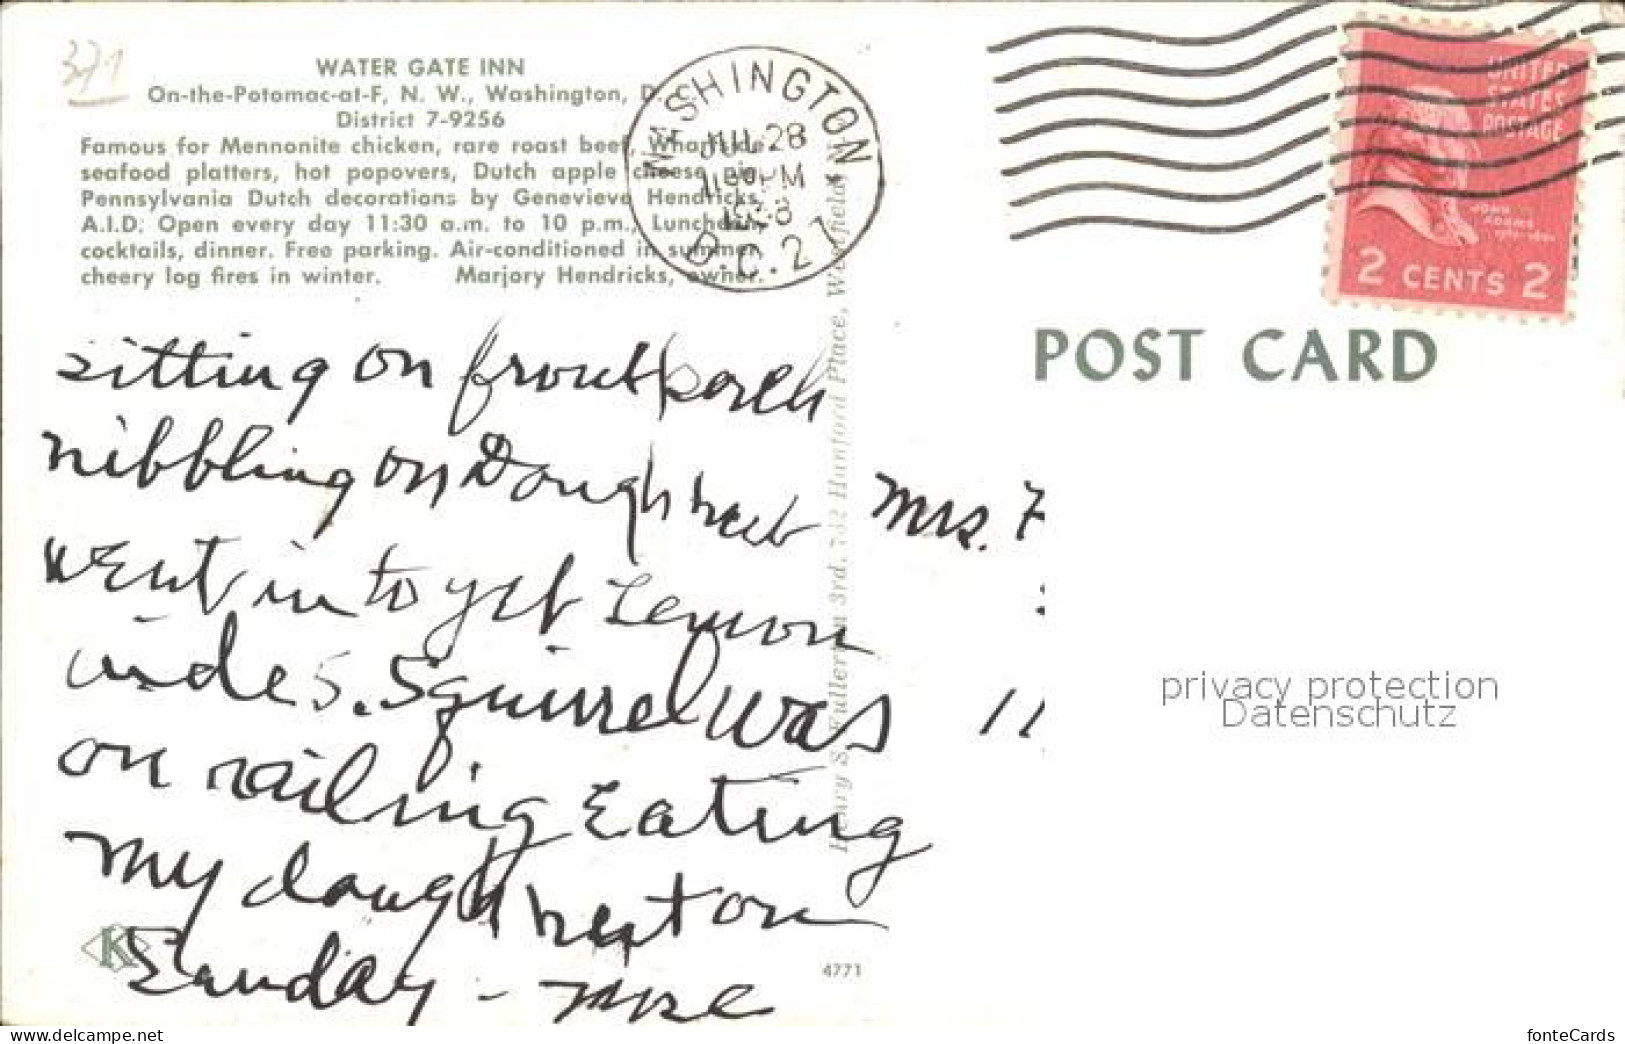 371
WATER GATE INN
On-the-Potomac-at-F, N. W., Washington, D. C.
District 7-9256
Famous for Mennonite chicken, rare roast beef, Wharfside
seafood platters, hot popovers, Dutch apple cheese pie,
Pennsylvania Dutch decorations by Genevieve Hendricks,
A.I.D. Open every day 11:30 a.m. to 10 p.m., Luncheon,
cocktails, dinner. Free parking. Air-conditioned in summer,
cheery log fires in winter. Marjory Hendricks, owner.
WASHINGTON
JUL 28
PM
D.C. 27
UNITED
STATES
POSTAGE
JOHN
ADAMS
2 CENTS 2
POST CARD
sitting on front porch
nibbling on Doughnut
went in to get Lemon
ades. Squirrel was
on railing Eating
my doughnut on
Sunday -
Mrs. F
11
Henry S. Fullerton 3rd, 732 Hanford Place, Westfield
K
4771
privacy protection
Datenschutz
www.delcampe.net
fonteCards